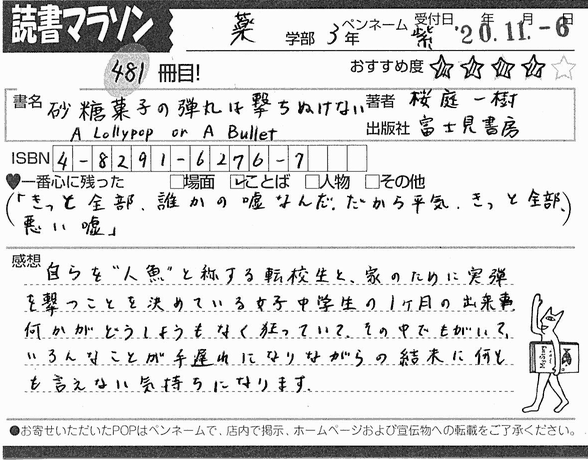 読書マラソン
薬 学部 3年 ペンネーム 紫 受付日 '20.11.-6 年 月 日
481 冊目!
おすすめ度 ★★★★☆
書名 砂糖菓子の弾丸は撃ちぬけない
A Lollypop or A Bullet
著者 桜庭一樹
出版社 富士見書房
ISBN 4-8291-6276-7
♥一番心に残った □場面 ☑ことば □人物 □その他
(「きっと全部、誰かの嘘なんだ。だから平気。きっと全部、
悪い嘘」)
感想
自らを"人魚"と称する転校生と、家のために実弾
を撃つことを決めている女子中学生の1ヶ月の出来事。
何かがどうしようもなく狂っていて、その中でもがいて、
いろんなことが手遅れになりながらの結末に何と
も言えない気持ちになります。
●お寄せいただいたPOPはペンネームで、店内で掲示、ホームページおよび宣伝物への転載をご了承ください。